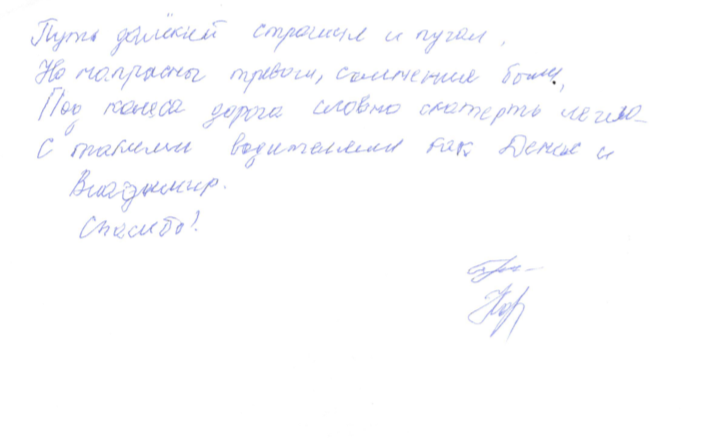 Путь далёкий страшил и пугал,
Но напрасны тревоги, сомнения были,
Под колёса дорога словно скатерть легла
С такими водителями как Денис и
Владимир.
Спасибо!